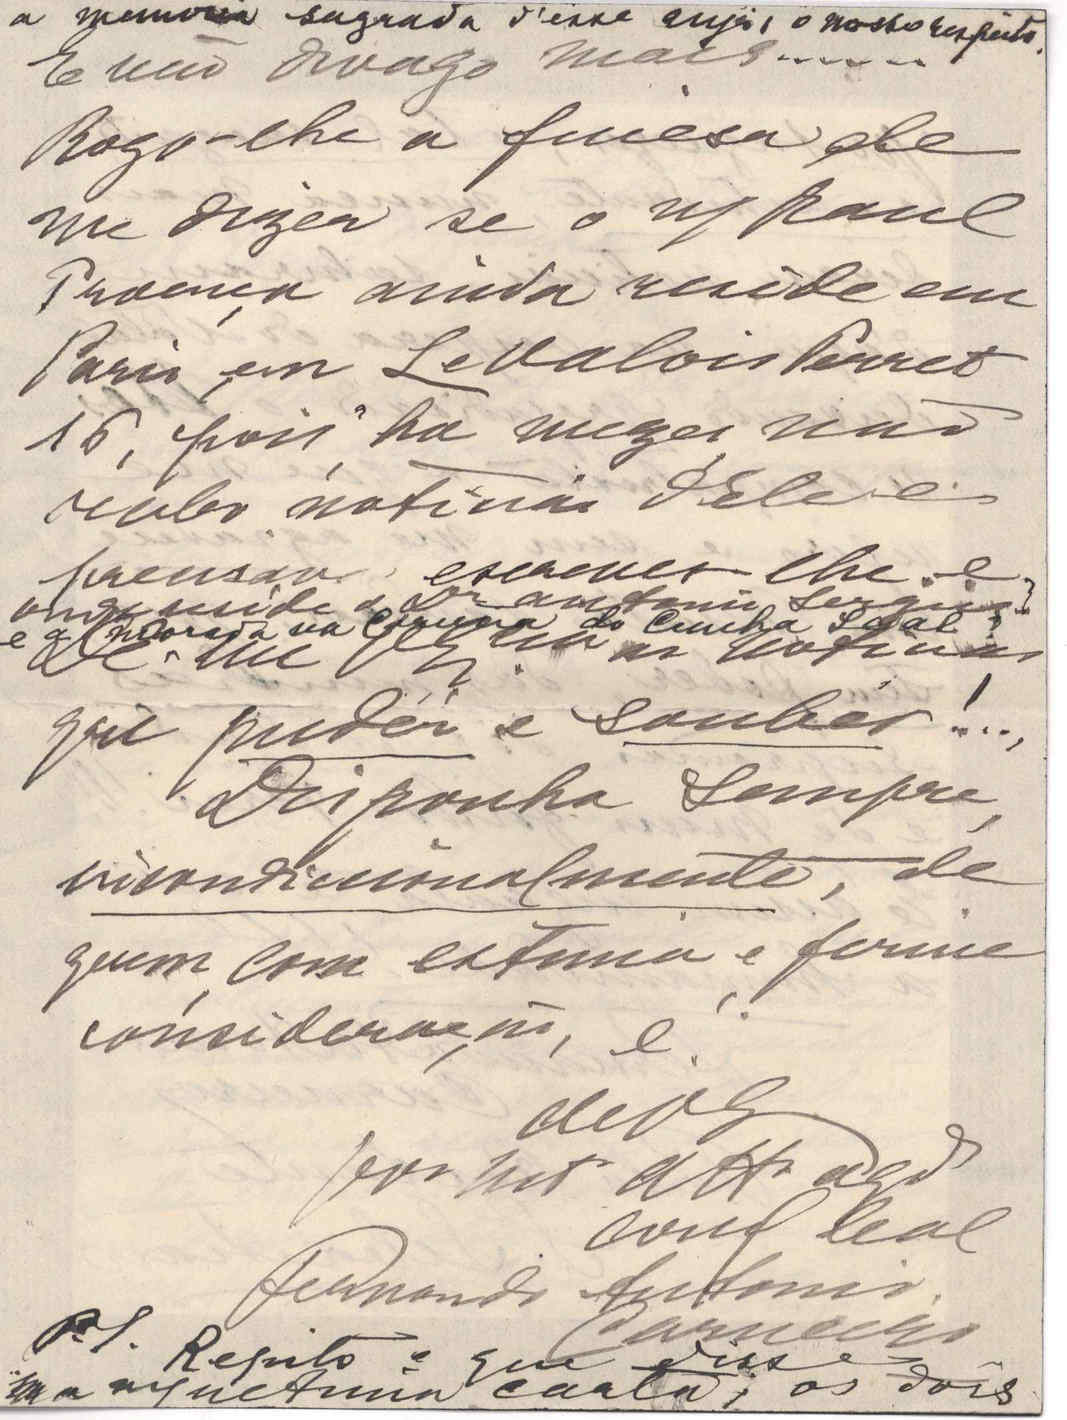 a memoria sagrada d'esse anjo, o nosso respeito.
E não divago mais......
Rogo-lhe a finesa de
me dizer se o Raul
Proença ainda reside em
Paris, em LeValois Perret
16, pois ha mezes não
recebo noticias d'Ele e
precisava escrever-lhe. e
onde reside o Dr Antonio Sergio?
e a morada na Coruna do Cunha Leal?
Dê-me as noticias
que pudér e soubér!...
Disponha sempre,
incondiccionalmente, de
quem, com estima e firme
consideração, é
de VS
por mto attº agdº
leal
Fernando Antonio
Carneiro
P.S. Repito o que disse
na ultima carta; os dois